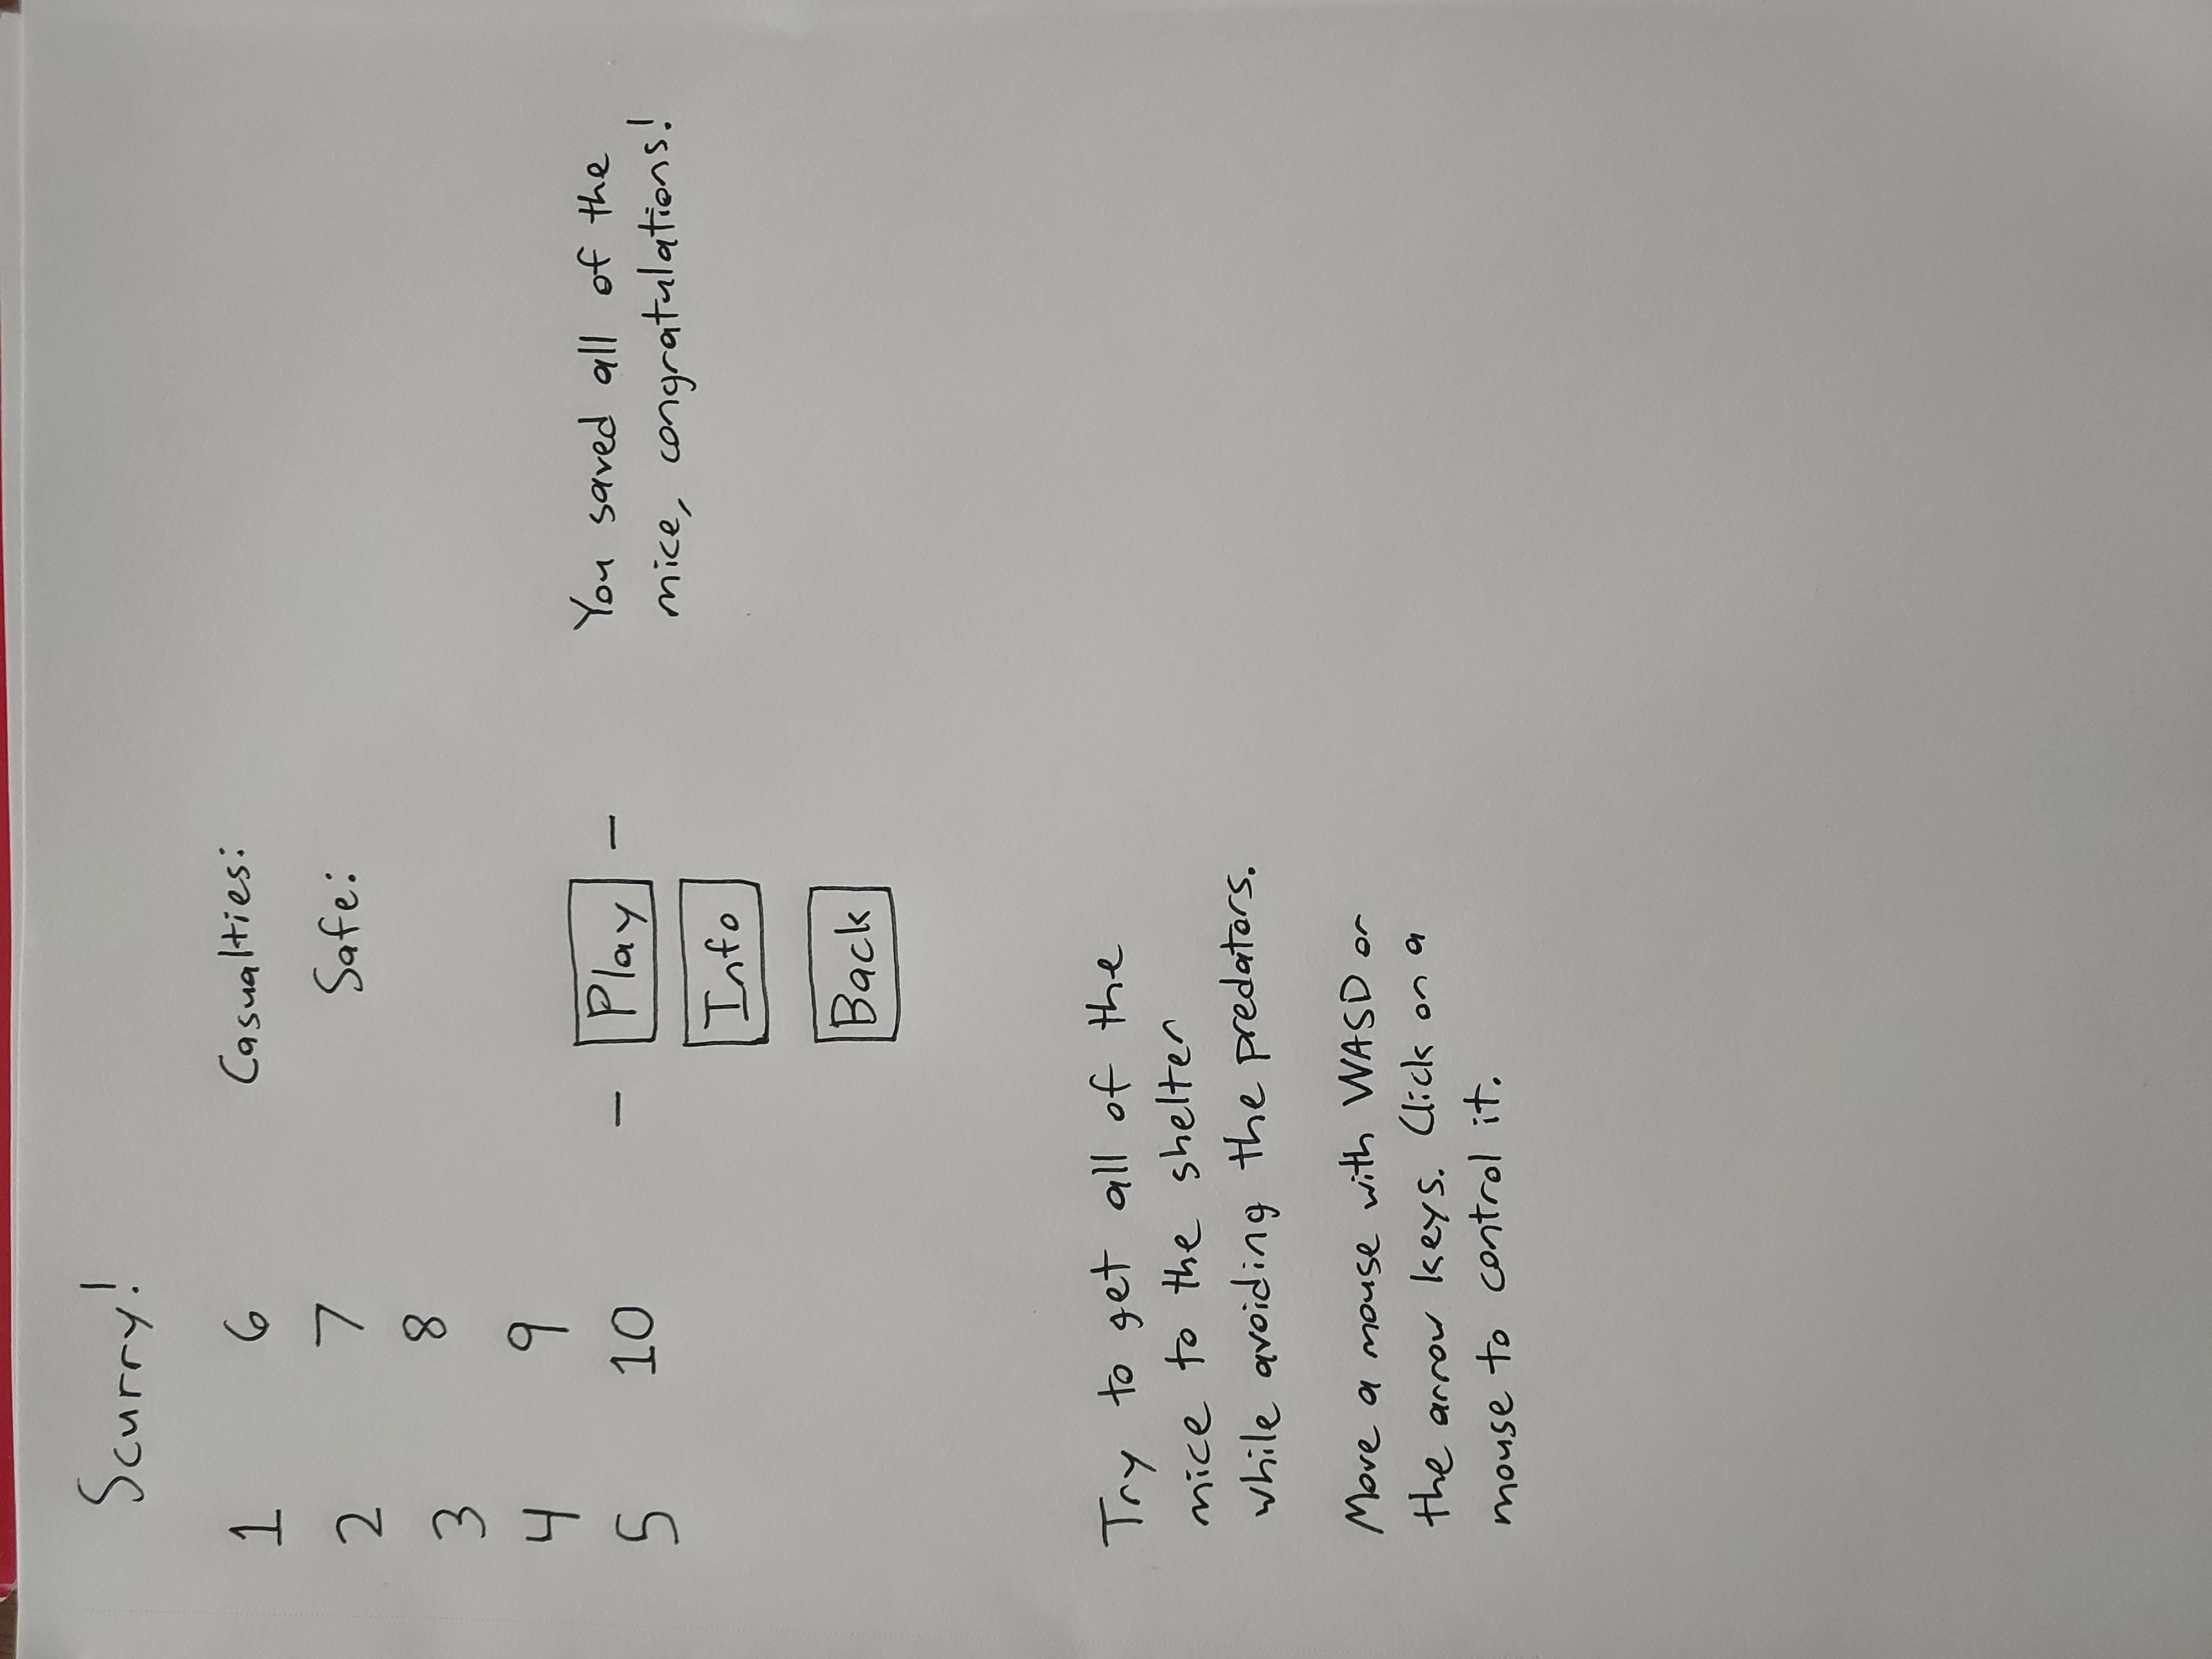 Scurry!
1
2
3
4
5
6
7
8
9
10
Casualties:
Safe:
- Play -
Info
Back
You saved all of the
mice, congratulations!
Try to get all of the
mice to the shelter
while avoiding the predators.
Move a mouse with WASD or
the arrow keys. Click on a
mouse to control it.